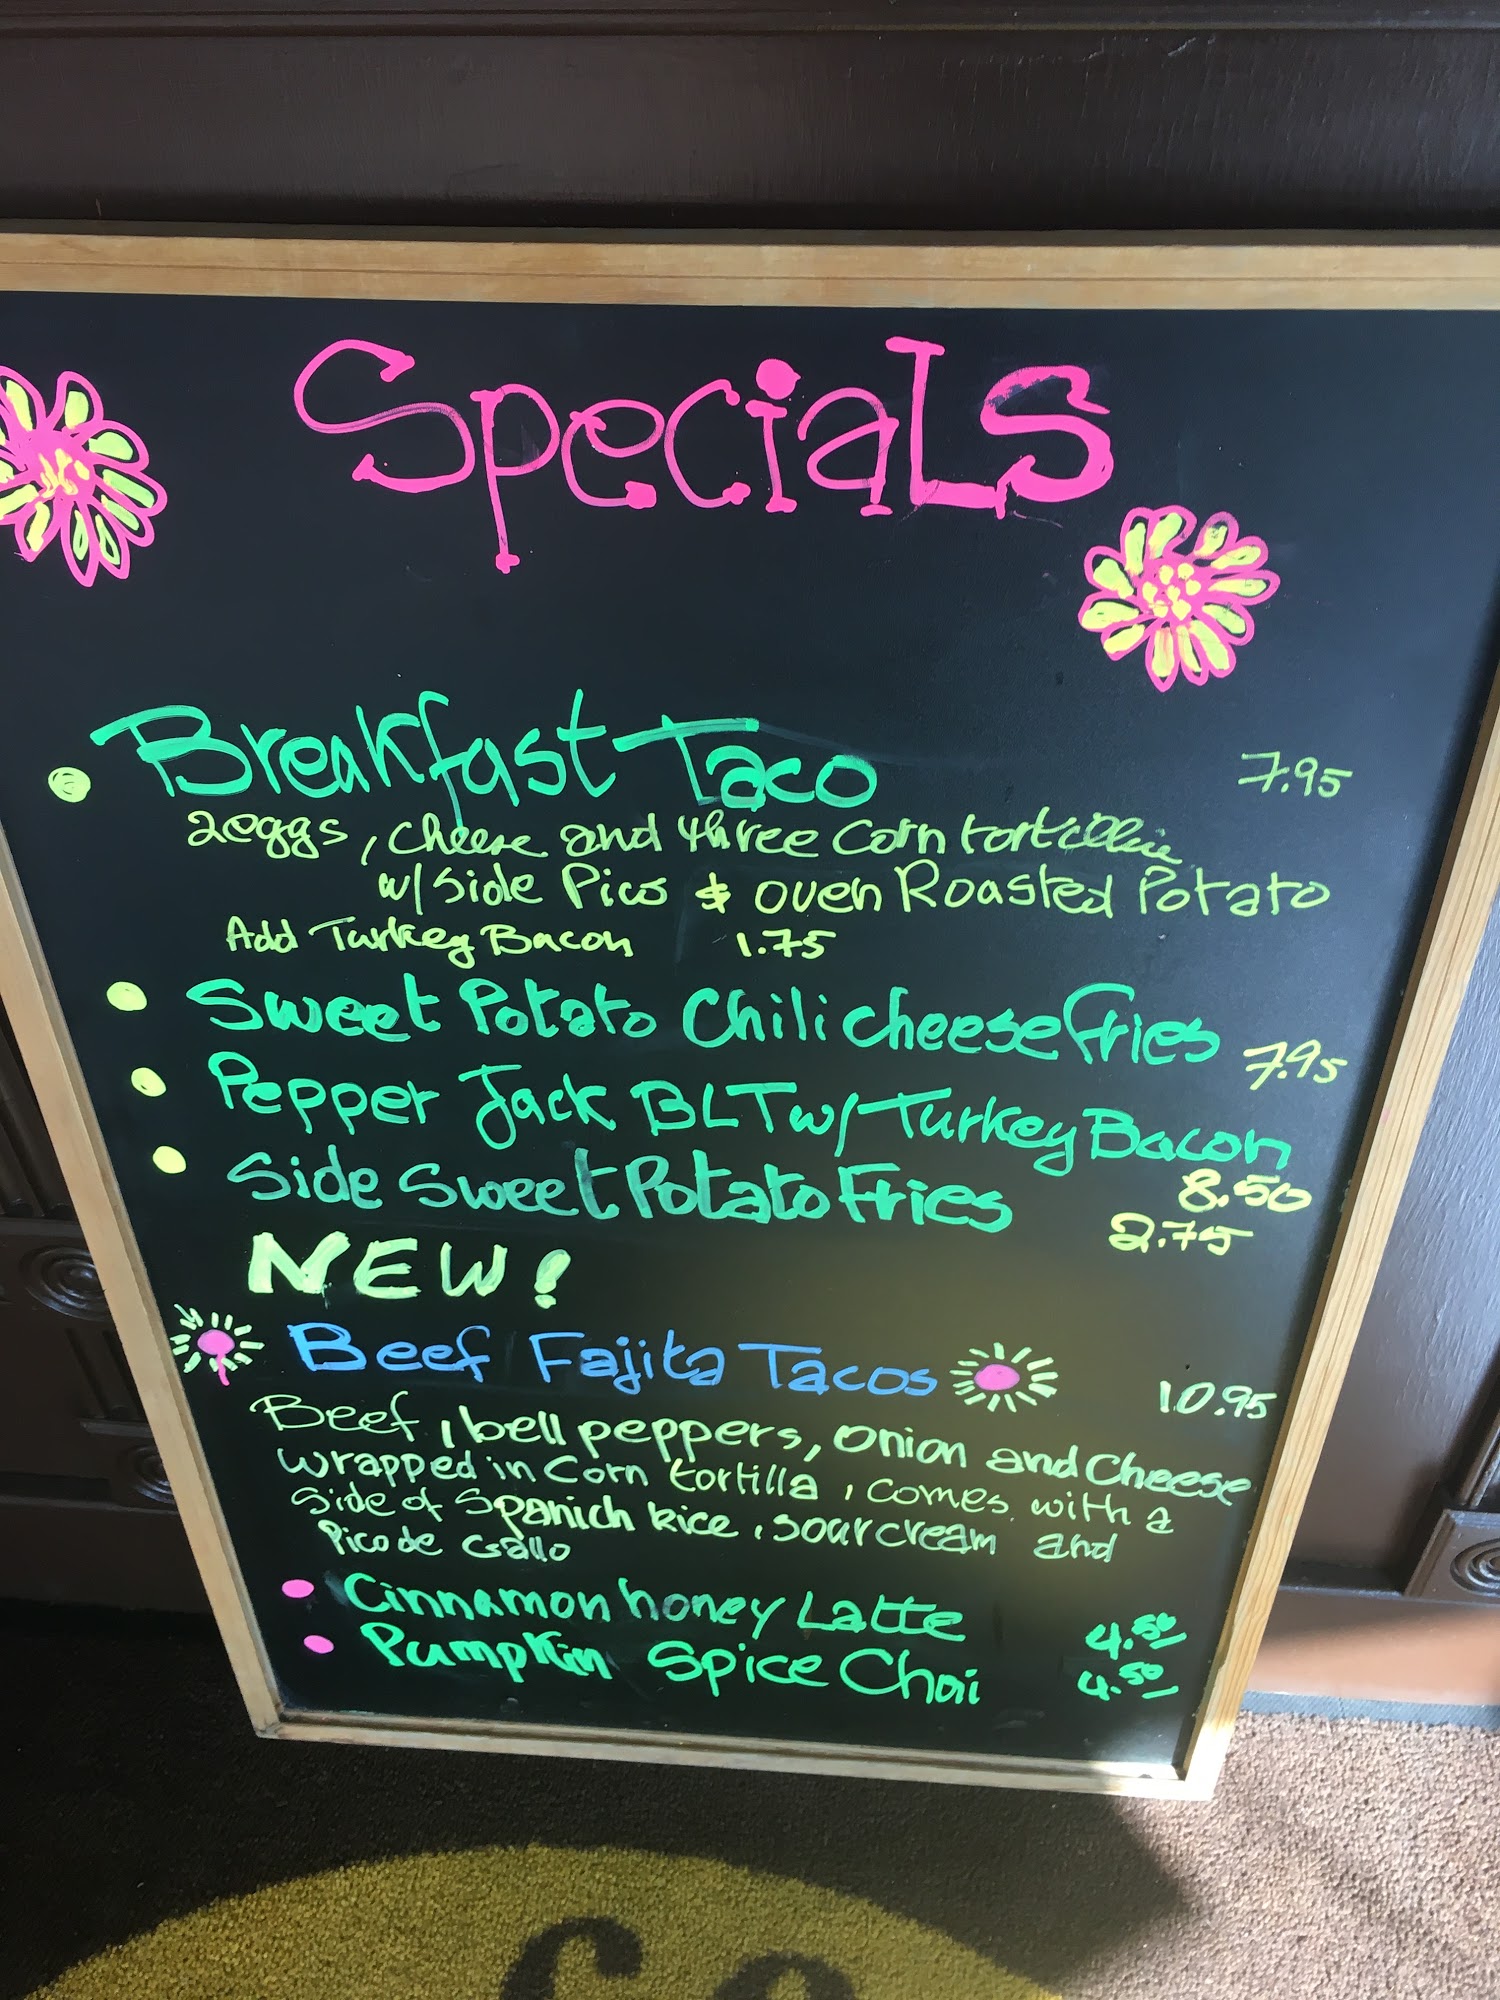 Specials
Breakfast Taco 7.95
2eggs, Cheese and three Corn tortilla
w/ Side Pico & oven Roasted Potato
Add Turkey Bacon 1.75
Sweet Potato Chili cheese Fries 7.95
Pepper Jack BLT w/ Turkey Bacon 8.50
Side Sweet Potato Fries 2.75
NEW!
Beef Fajita Tacos 10.95
Beef, bell peppers, onion and Cheese
wrapped in Corn tortilla, comes with a
Side of Spanich Rice, Sour cream and
Pico de Gallo
Cinnamon honey Latte 4.50
Pumpkin Spice Chai 4.50